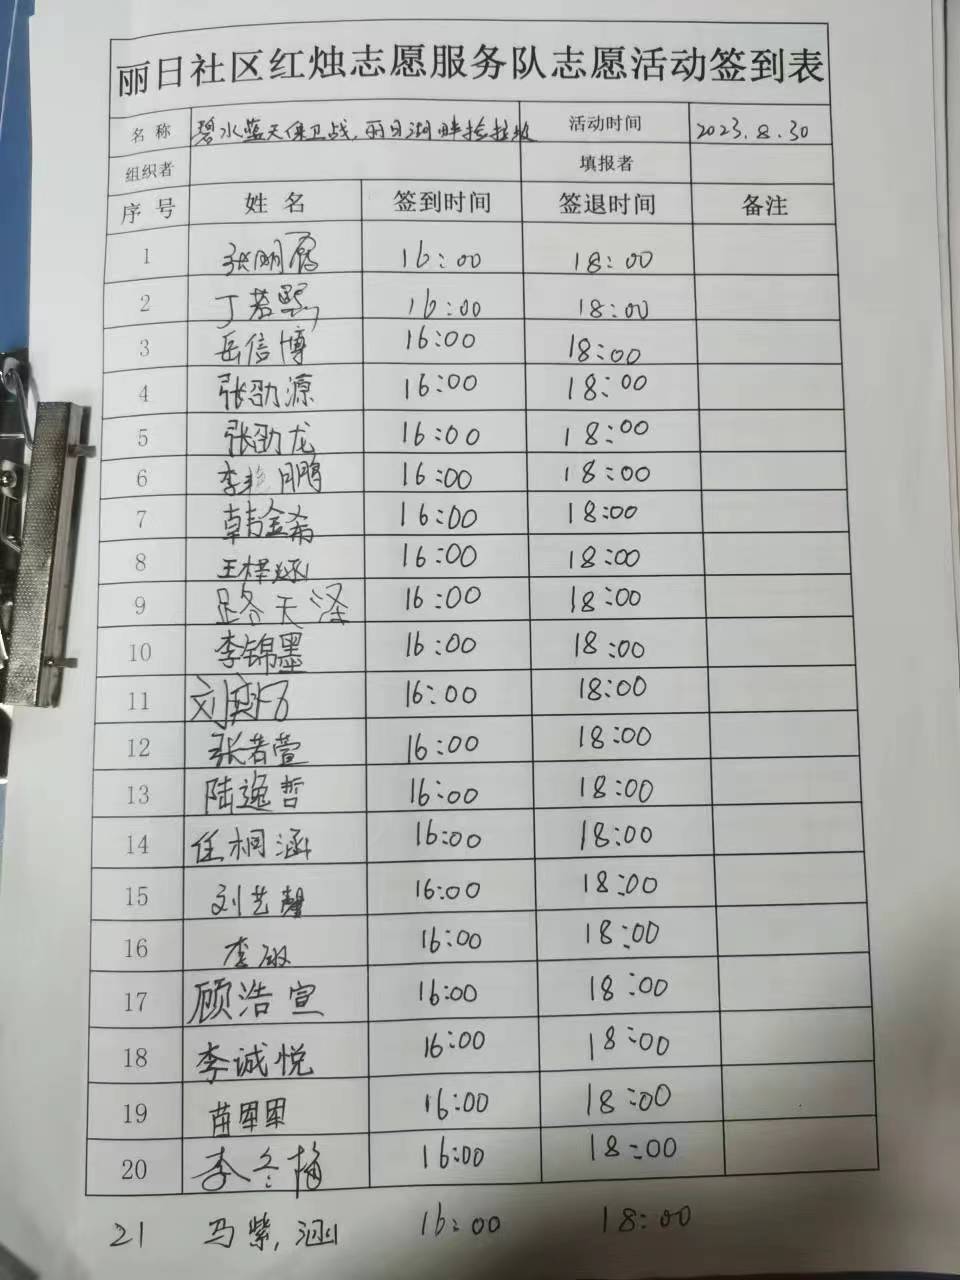 丽日社区红烛志愿服务队志愿活动签到表
名 称 碧水蓝天保卫战,丽日湖畔捡垃圾 活动时间 2023.8.30
组织者 填报者
序 号 姓 名 签到时间 签退时间 备注
1 张明 16:00 18:00
2 丁若 16:00 18:00
3 岳信博 16:00 18:00
4 张劭源 16:00 18:00
5 张劭龙 16:00 18:00
6 李艳鹏 16:00 18:00
7 韩金希 16:00 18:00
8 王梓 16:00 18:00
9 路天泽 16:00 18:00
10 李锦墨 16:00 18:00
11 刘 16:00 18:00
12 张若萱 16:00 18:00
13 陆逸哲 16:00 18:00
14 任桐涵 16:00 18:00
15 刘艺馨 16:00 18:00
16 李敏 16:00 18:00
17 顾浩宣 16:00 18:00
18 李诚悦 16:00 18:00
19 苗 16:00 18:00
20 李冬梅 16:00 18:00
21 马紫涵 16:00 18:00